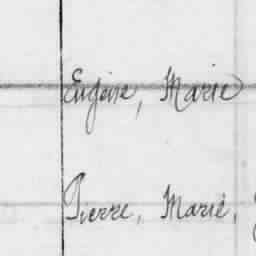 Eugène, Marie
Pierre, Marie,